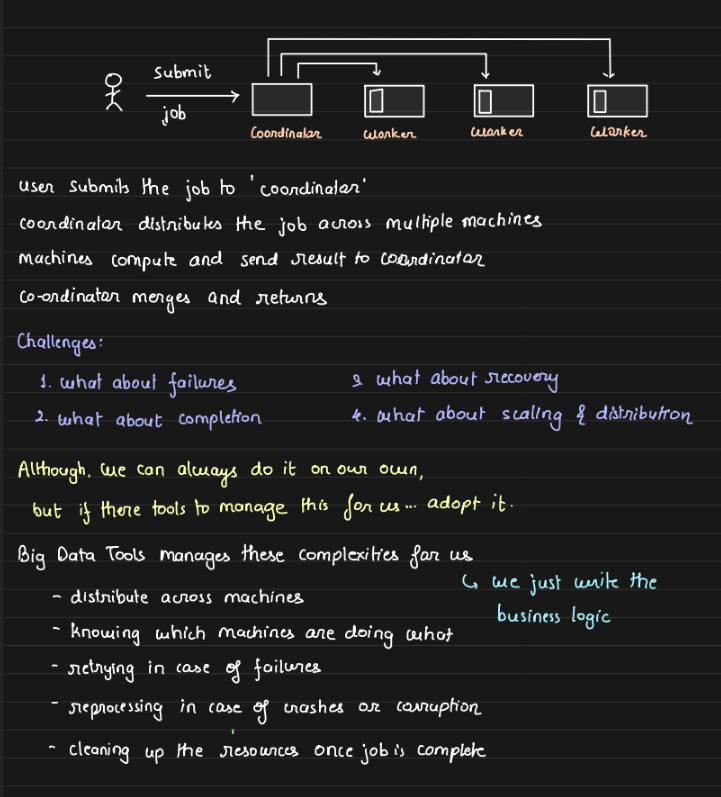 submit
job
Coordinator
Worker
Worker
Worker
user submits the job to 'coordinator'
coordinator distributes the job across multiple machines
machines compute and send result to coordinator
co-ordinator merges and returns
Challenges:
1. what about failures
3 what about recovery
2. what about completion
4. what about scaling & distribution
Although, we can always do it on our own,
but if there tools to manage this for us... adopt it.
Big Data Tools manages these complexities for us
↳ we just write the
business logic
- distribute across machines
- knowing which machines are doing what
- retrying in case of failures
- reprocessing in case of crashes or corruption
- cleaning up the resources once job is complete